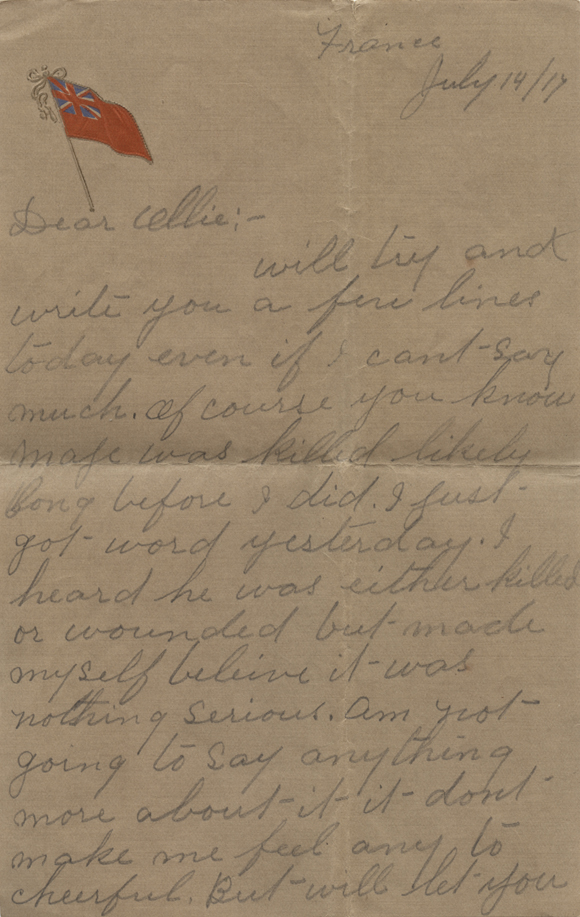 France
July 14/17
Dear Ellie:-
will try and
write you a few lines
today even if I cant say
much. Of course you know
was killed likely
long before I did. I just
got word yesterday. I
heard he was either killed
or wounded but made
myself beleive it was
nothing serious. Am not
going to say anything
more about it it dont
make me feel any to
cheerful. But will let you